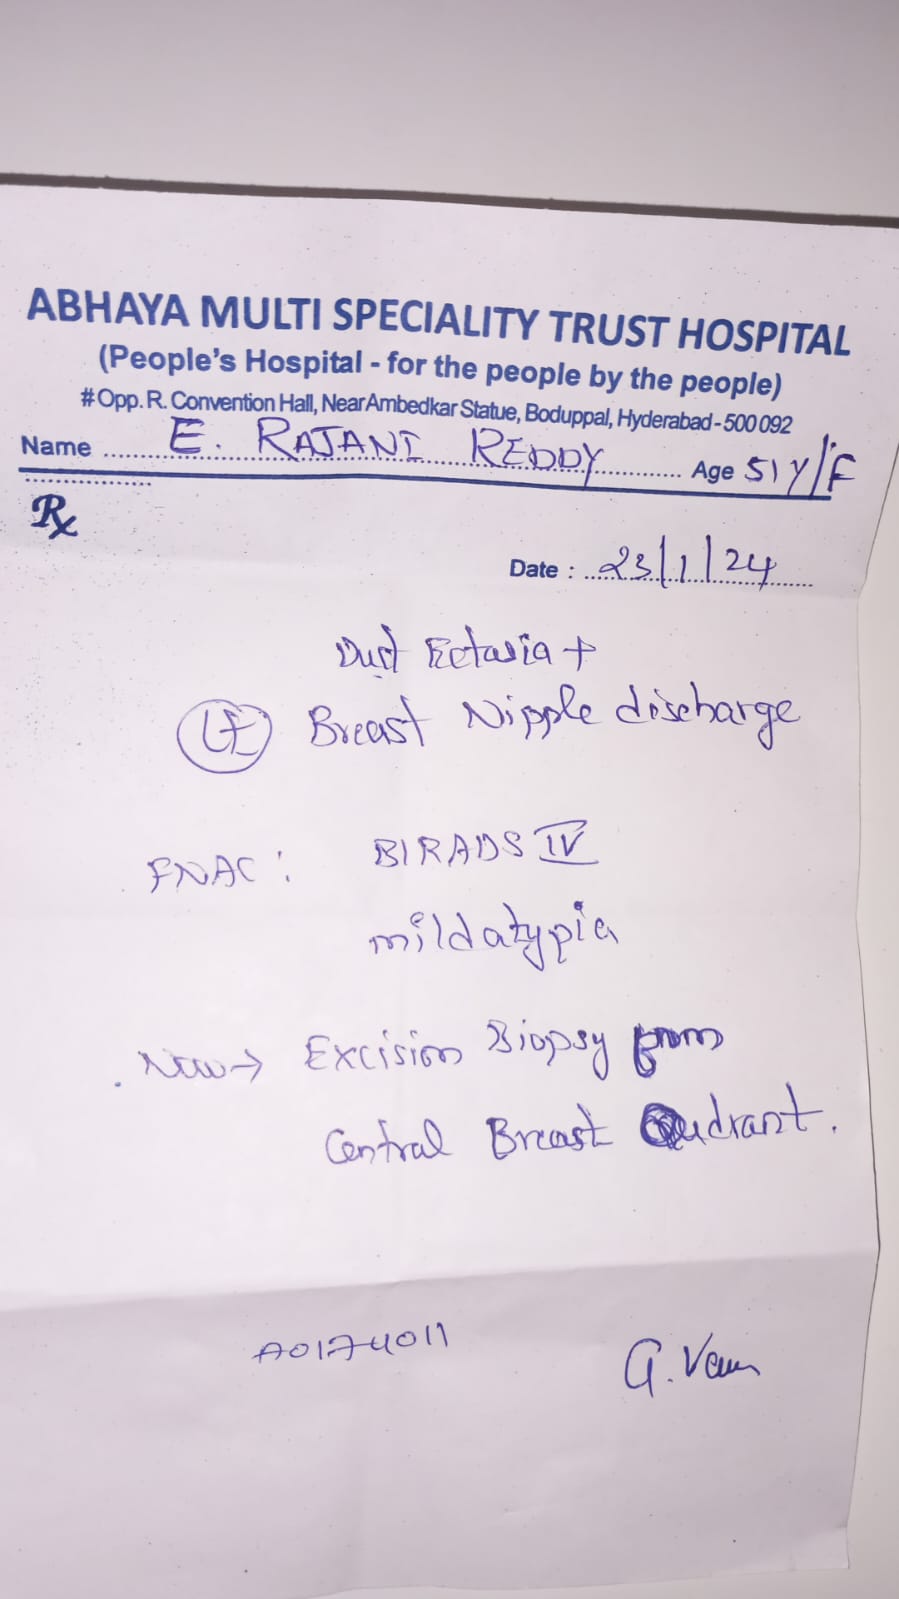 ABHAYA MULTI SPECIALITY TRUST HOSPITAL
(People's Hospital - for the people by the people)
# Opp. R. Convention Hall, Near Ambedkar Statue, Boduppal, Hyderabad - 500 092
Name E. RAJANI REDDY Age 51 Y/F
Rx
Date : 23/1/24
Duct Ectasia +
LE Breast Nipple discharge
FNAC : BIRADS IV
mild atypia
Now → Excision Biopsy from
Central Breast Qudrant.
A0174011
G.